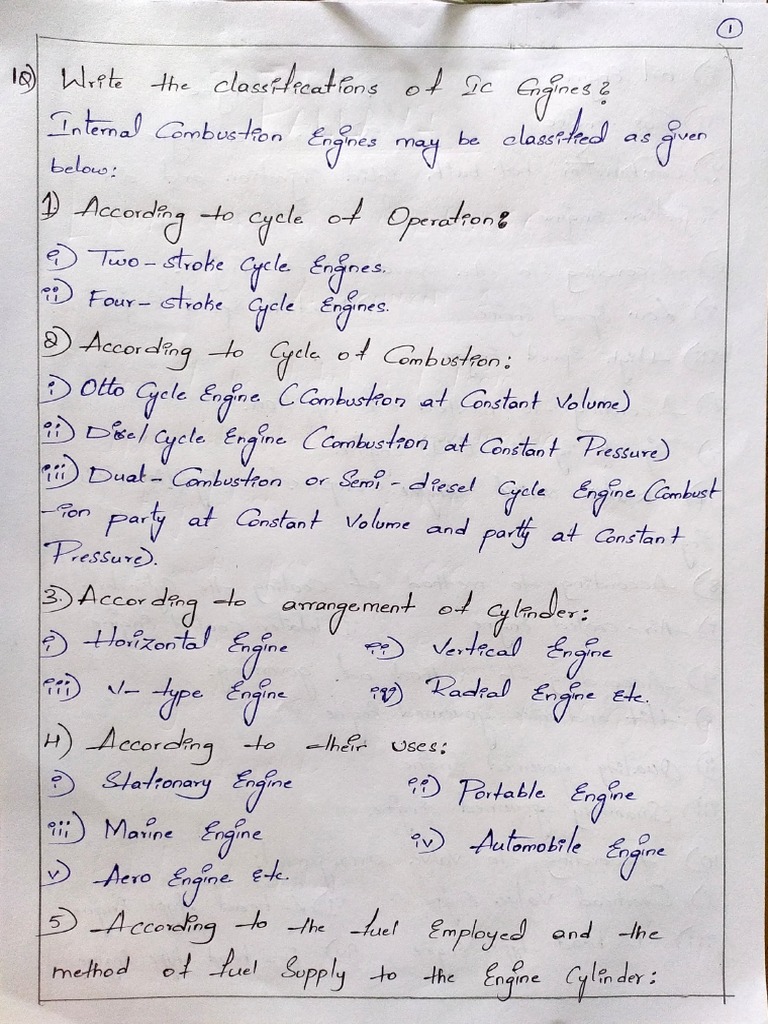 1
1Q) Write the classifications of IC Engines?
Internal Combustion Engines may be classified as given
below:
1) According to cycle of Operation:
i) Two-stroke cycle Engines.
ii) Four-stroke cycle Engines.
2) According to Cycle of Combustion:
i) Otto Cycle Engine (Combustion at Constant Volume)
ii) Disel cycle Engine (Combustion at Constant Pressure)
iii) Dual-Combustion or Semi-diesel Cycle Engine (Combust
-ion party at Constant Volume and partly at Constant
Pressure).
3) According to arrangement of cylinder:
i) Horizontal Engine ii) Vertical Engine
iii) V-type Engine iv) Radial Engine Etc.
4) According to their uses:
i) Stationary Engine ii) Portable Engine
iii) Marine Engine iv) Automobile Engine
v) Aero Engine Etc.
5) According to the fuel Employed and the
method of fuel Supply to the Engine Cylinder: